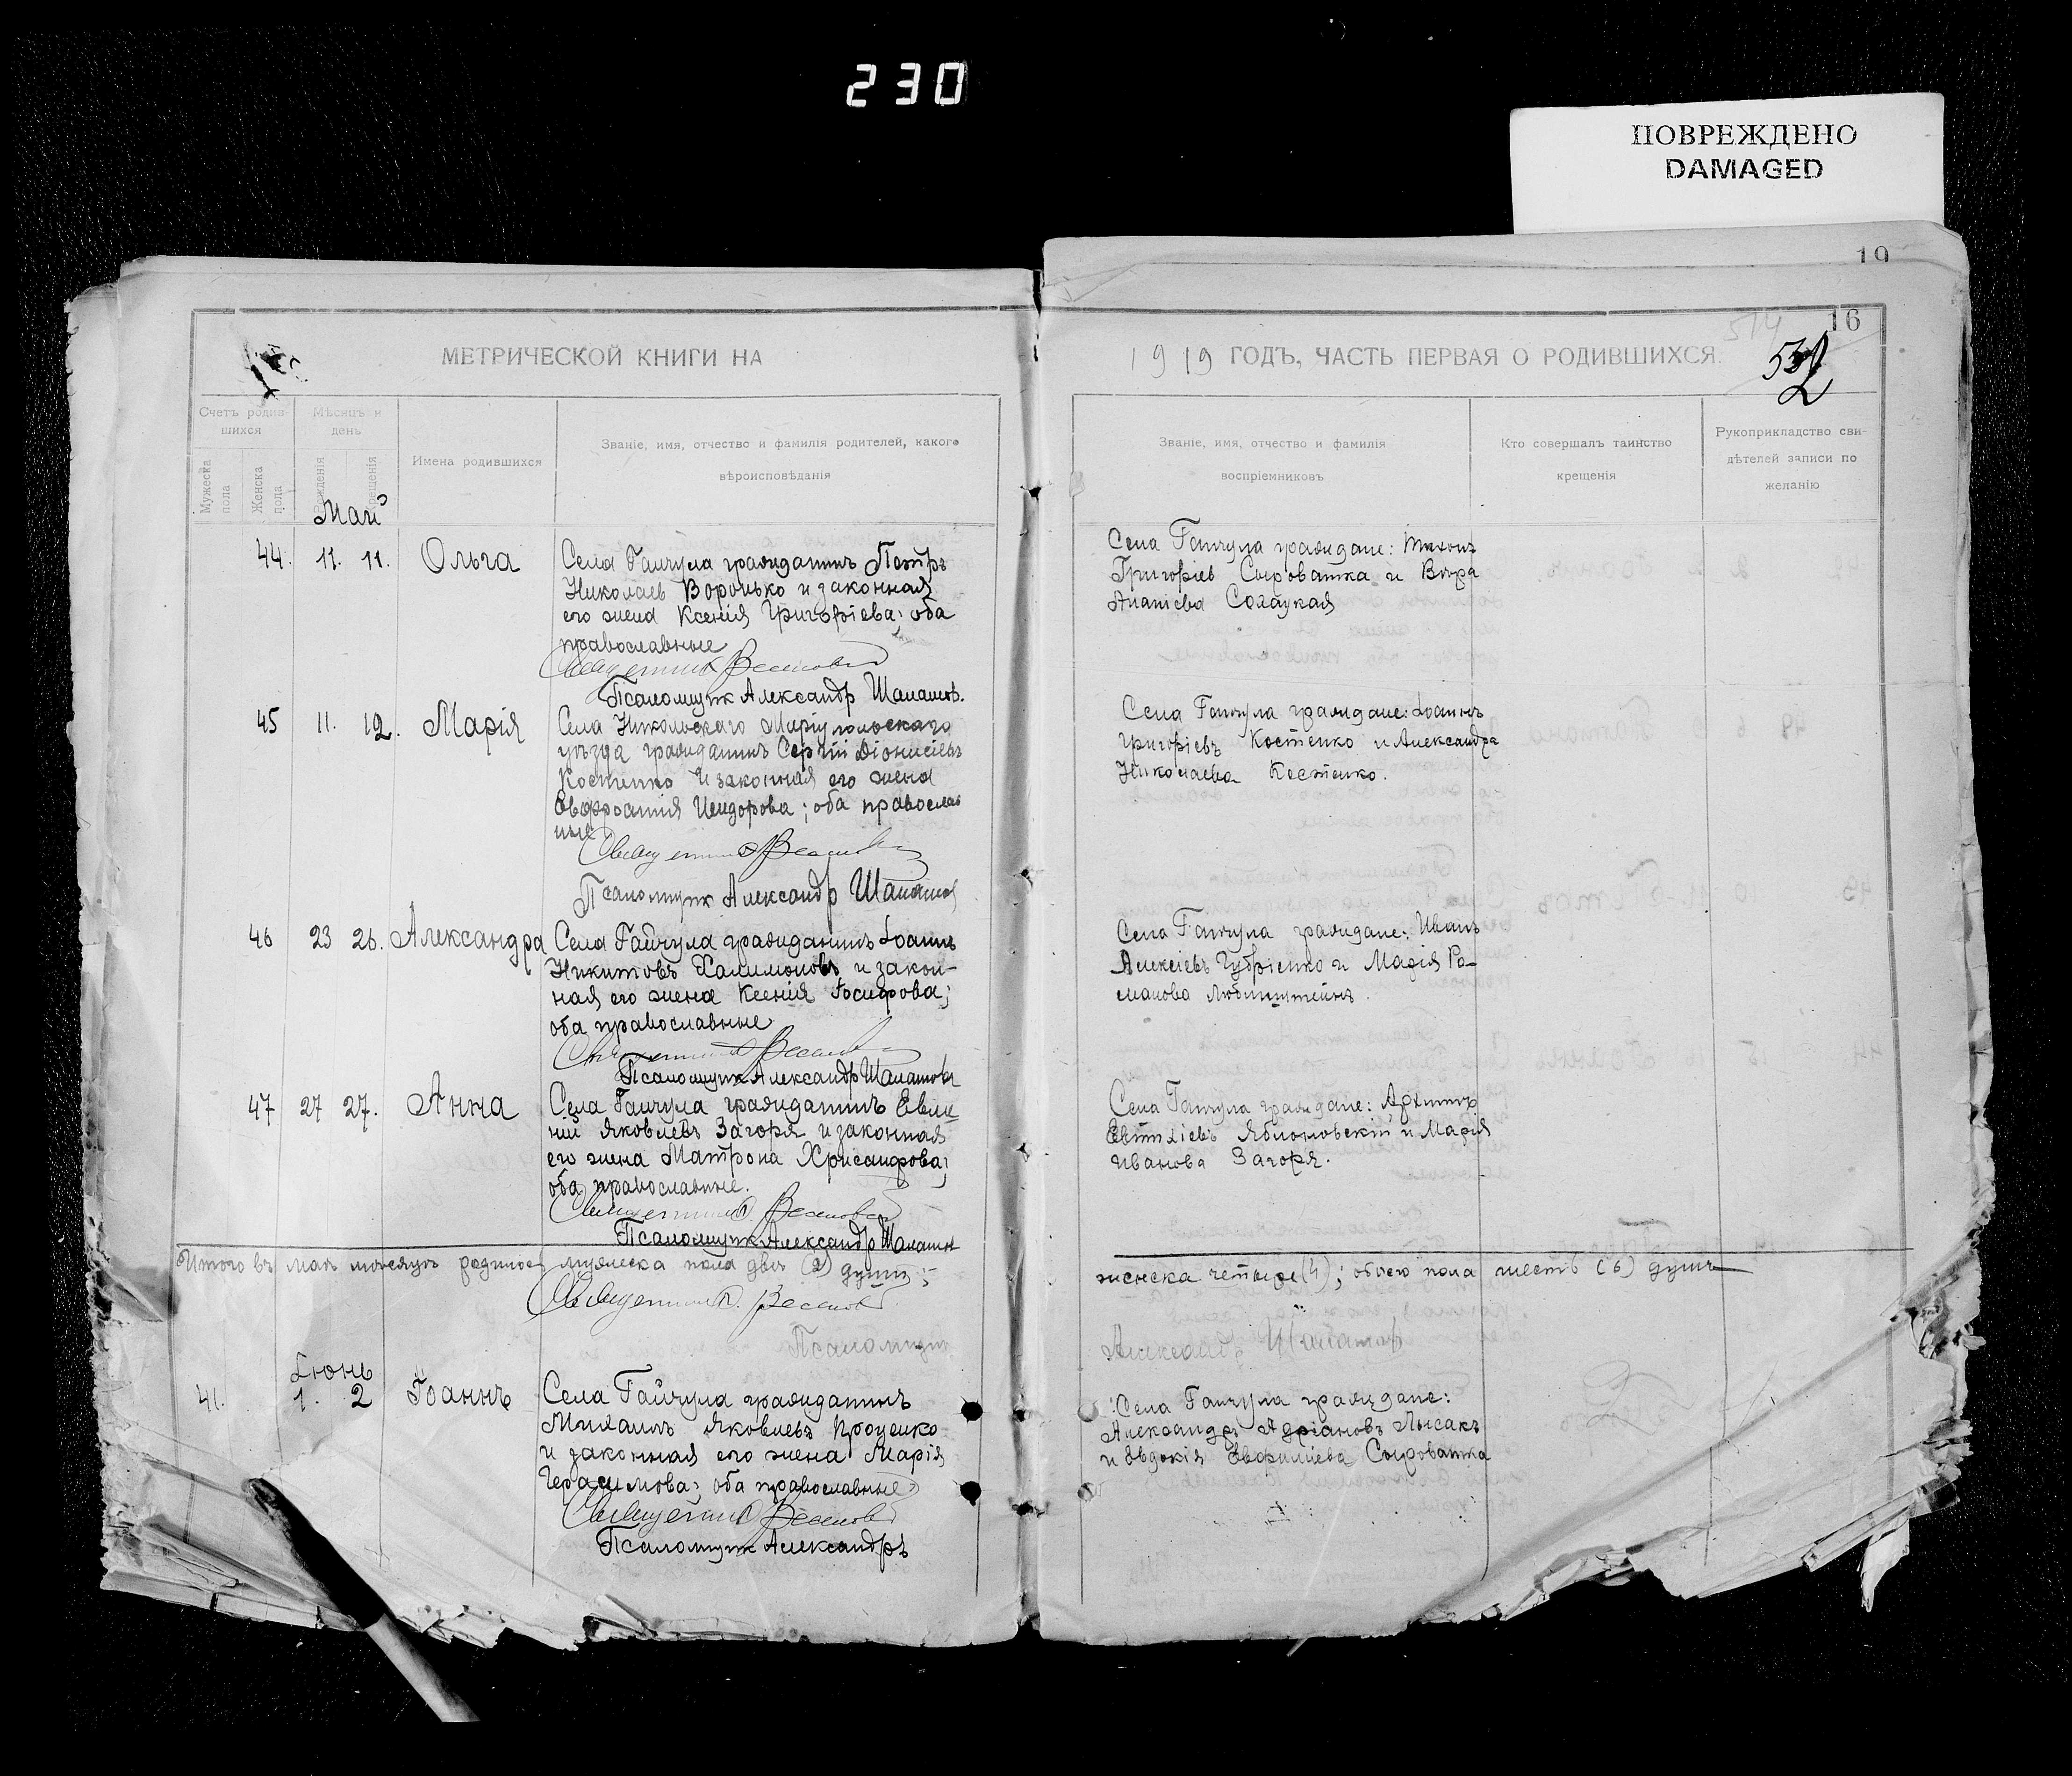 230
ПОВРЕЖДЕНО
DAMAGED
19
16
МЕТРИЧЕСКОЙ КНИГИ НА
1919 ГОДЪ, ЧАСТЬ ПЕРВАЯ О РОДИВШИХСЯ.
Счетъ родив-
шихся
Мужеска пола
Женска пола
Мѣсяцъ и
день
рожденія
крещенія
Имена родившихся
Званіе, имя, отчество и фамилія родителей, какого
вѣроисповѣданія
Званіе, имя, отчество и фамилія
воспріемниковъ
Кто совершалъ таинство
крещенія
Рукоприкладство сви-
дѣтелей записи по
желанію
Май
44. 11. 11. Ольга
Села Гайчула гражданинъ Петръ
Николаев Воронько и законная
его жена Ксенія Григоріева; оба
православные
Священник
Псаломщик Александр Шаматов.
Села Гайчула граждане: Тихонъ
Григоріев Сыроватка и Вѣра
Ананіева Солацкая
45 11. 12. Марія
Села Никольскаго Маріупольскаго
уѣзда гражданинъ Сергій Діонисіевъ
Костенко и законная его жена
Евфросинія Исидорова; оба православ
ные
Священник
Псаломщик Александр Шаматов
Села Гайчула граждане: Іоаннъ
Григоріевъ Костенко и Александра
Николаева Костенко.
46 23 26. Александра
Села Гайчула гражданинъ Іоаннъ
Никитовъ Халимоновъ и закон-
ная его жена Ксенія Іосифова;
оба православные
Священник
Псаломщик Александр Шаматов
Села Гайчула граждане: Иванъ
Алексіевъ Губріенко и Марія Ро-
манова
47 27 27. Анна
Села Гайчула гражданинъ Евме
ній Яковлевъ Загоря и законная
его жена Матрона Хрисанфова;
оба православные.
Священник
Псаломщик Александр Шаматов
Села Гайчула граждане: Архипъ
Яблоновскій и Марія
Иванова Загоря.
Итого въ маѣ мѣсяцѣ родилось мужеска пола двѣ (2) души;
женска четыре (4); обоего пола шесть (6) душъ
Священник
Псаломщик
Александр Шаматов
Іюнь
41. 1. 2 Іоаннъ
Села Гайчула гражданинъ
Михаилъ Яковлевъ Проценко
и законная его жена Марія
Герасимова; оба православные
Священник
Псаломщик Александръ
Села Гайчула граждане:
Александръ Адріановъ Лысакъ
и Евдокія Сыроватка